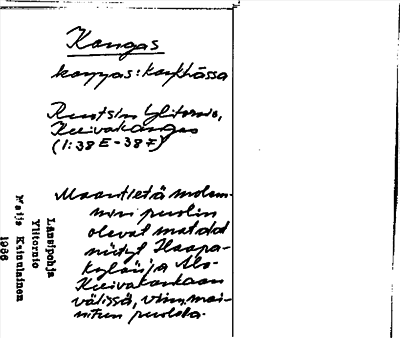 Kangas
kaŋŋas : kaŋkhāssa
Ruotsin Ylitornio,
Kuivakangas
(1:38 E - 38 F)
Maantietä molem-
min puolin
olevat matalat
niityt Haapa-
kylän ja Ala-
Kuivakankaan
välissä, viim. mai-
nitun puolella.
Länsipohja
Ylitornio
Maija Katulainen
1966